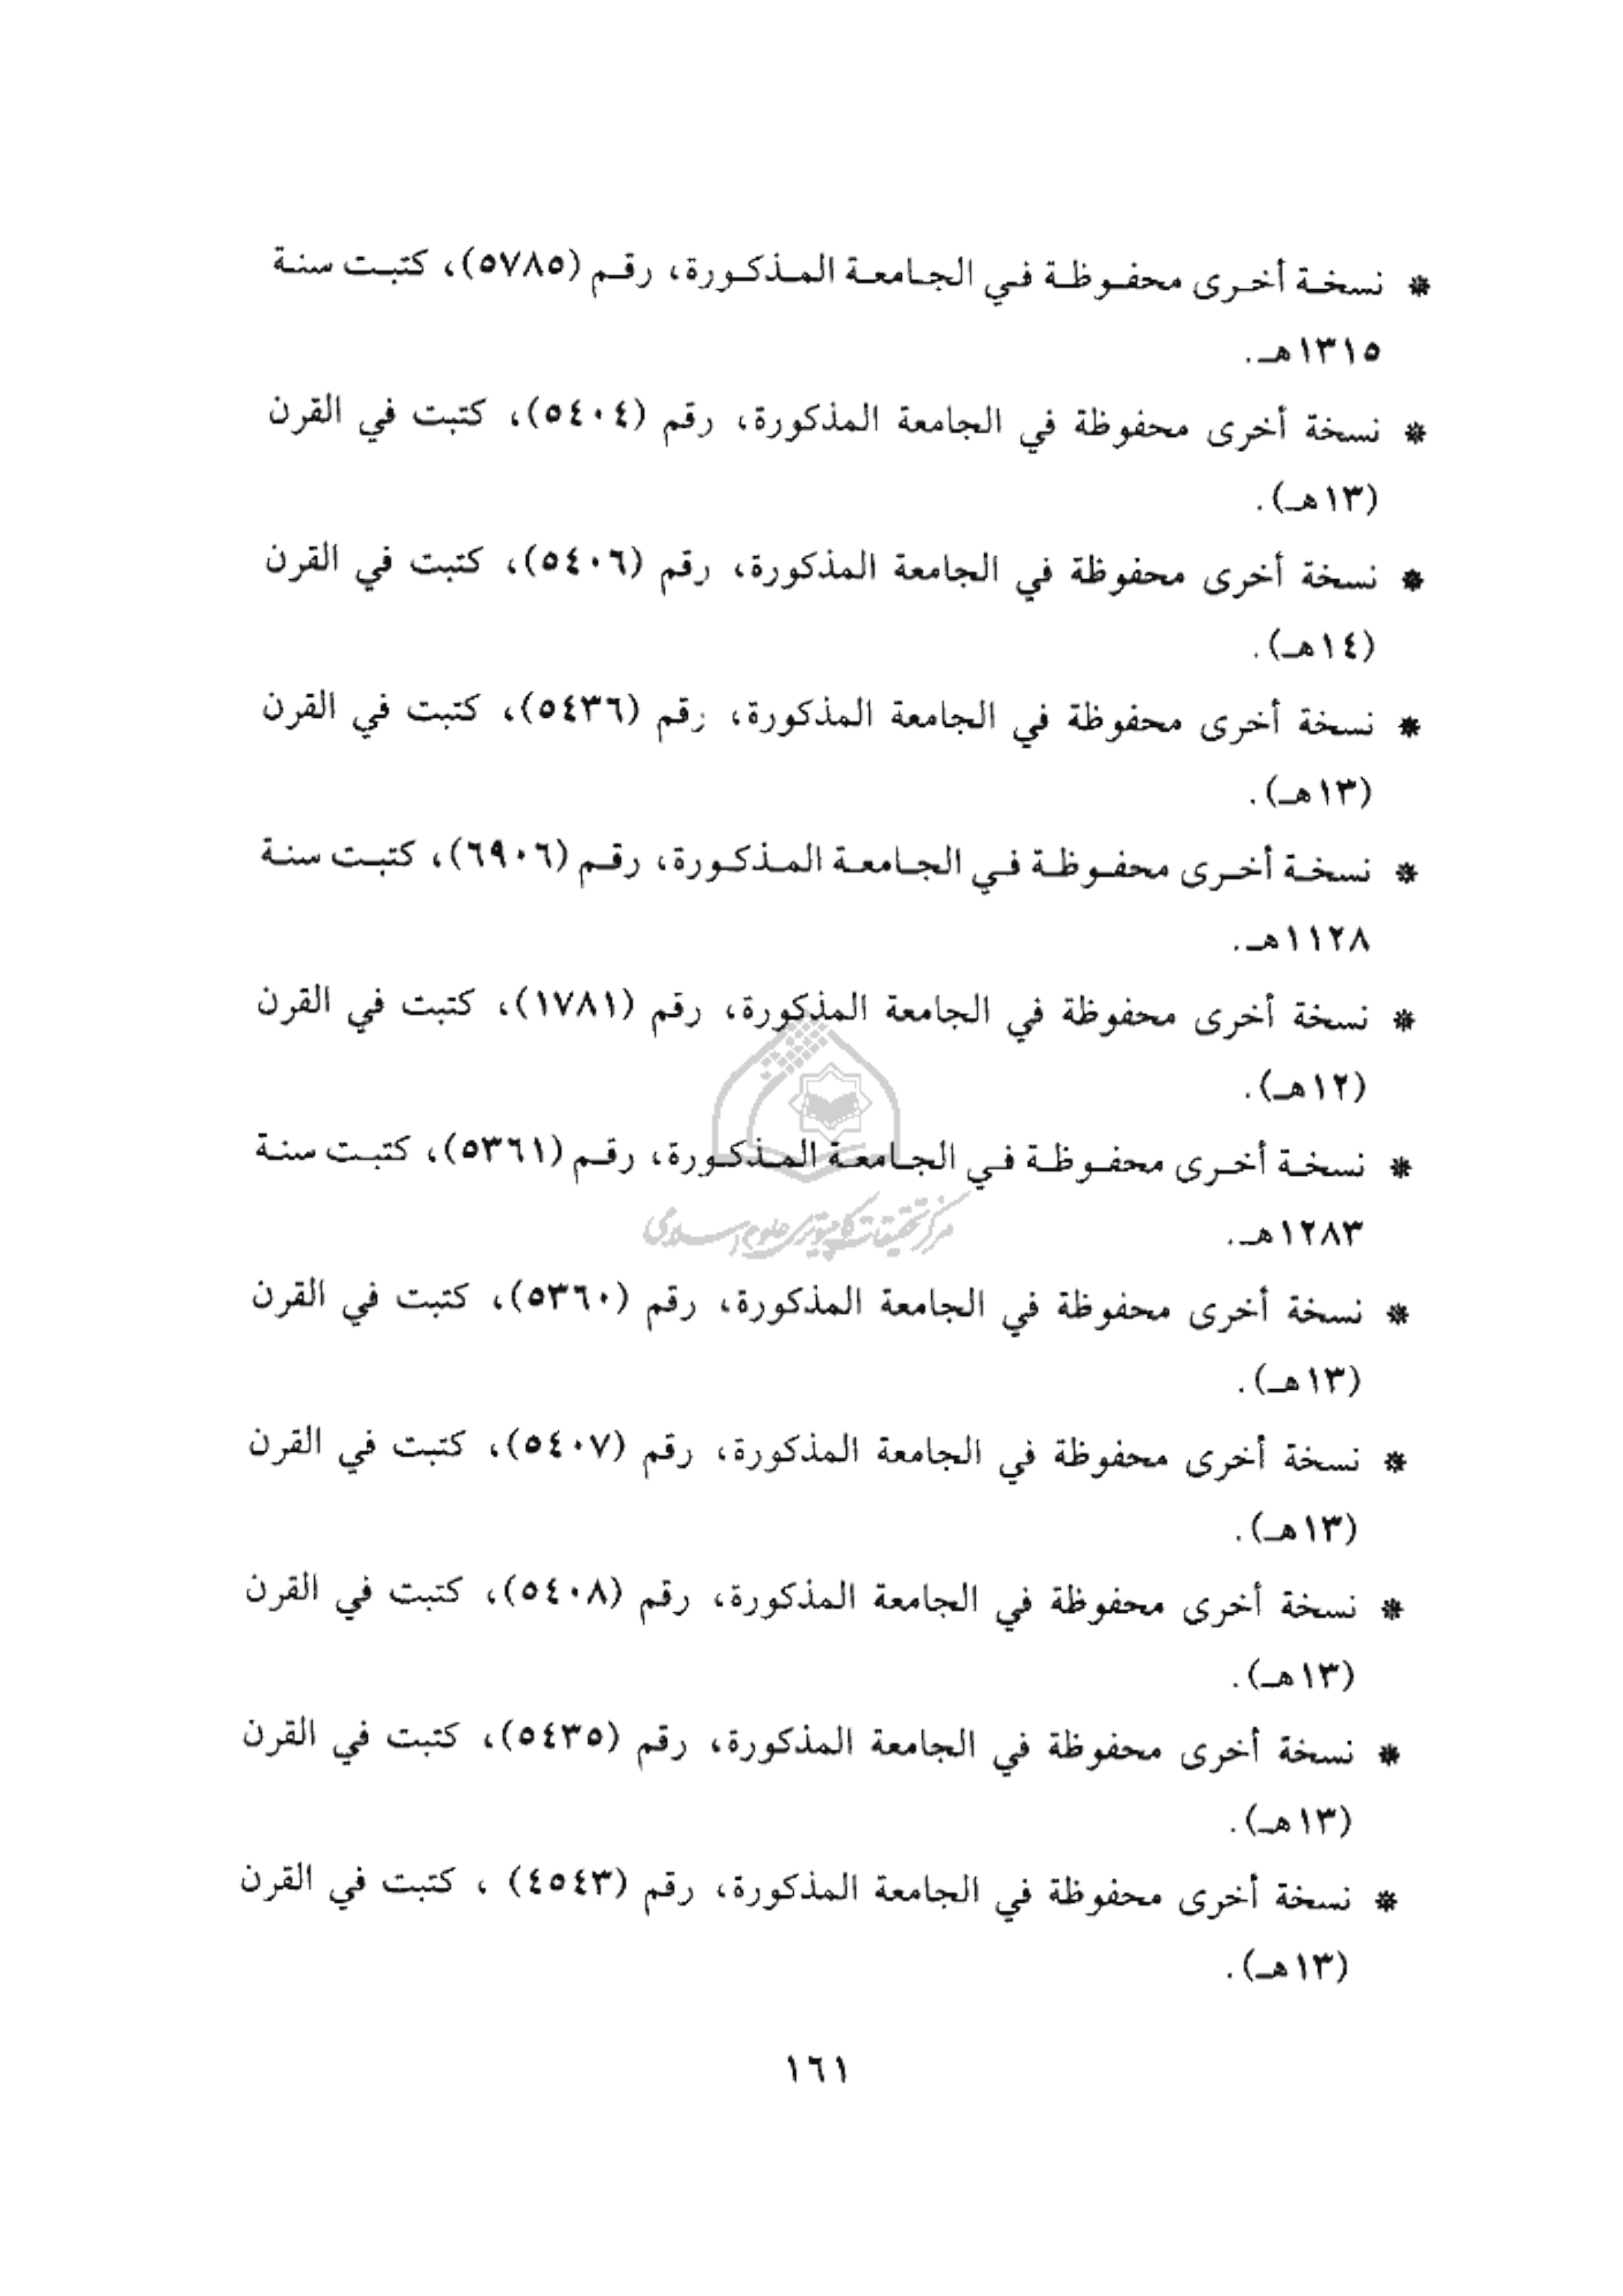 * نسخة أخرى محفوظة في الجامعة المذكورة، رقم (٥٧٨٥)، كتبت سنة
١٣١٥هـ.
* نسخة أخرى محفوظة في الجامعة المذكورة، رقم (٥٤٠٤)، كتبت في القرن
(١٣هـ).
* نسخة أخرى محفوظة في الجامعة المذكورة، رقم (٥٤٠٦)، كتبت في القرن
(١٤هـ).
* نسخة أخرى محفوظة في الجامعة المذكورة، رقم (٥٤٣٦)، كتبت في القرن
(١٣هـ).
* نسخة أخرى محفوظة في الجامعة المذكورة، رقم (٦٩٠٦)، كتبت سنة
١١٢٨هـ.
* نسخة أخرى محفوظة في الجامعة المذكورة، رقم (١٧٨١)، كتبت في القرن
(١٢هـ).
* نسخة أخرى محفوظة في الجامعة المذكورة، رقم (٥٣٦١)، كتبت سنة
مرکز تحقیقات کامپیوتری علوم اسلامی
١٢٨٣هـ.
* نسخة أخرى محفوظة في الجامعة المذكورة، رقم (٥٣٦٠)، كتبت في القرن
(١٣هـ).
* نسخة أخرى محفوظة في الجامعة المذكورة، رقم (٥٤٠٧)، كتبت في القرن
(١٣هـ).
* نسخة أخرى محفوظة في الجامعة المذكورة، رقم (٥٤٠٨)، كتبت في القرن
(١٣هـ).
* نسخة أخرى محفوظة في الجامعة المذكورة، رقم (٥٤٣٥)، كتبت في القرن
(١٣هـ).
* نسخة أخرى محفوظة في الجامعة المذكورة، رقم (٤٥٤٣) ، كتبت في القرن
(١٣هـ).
١٦١